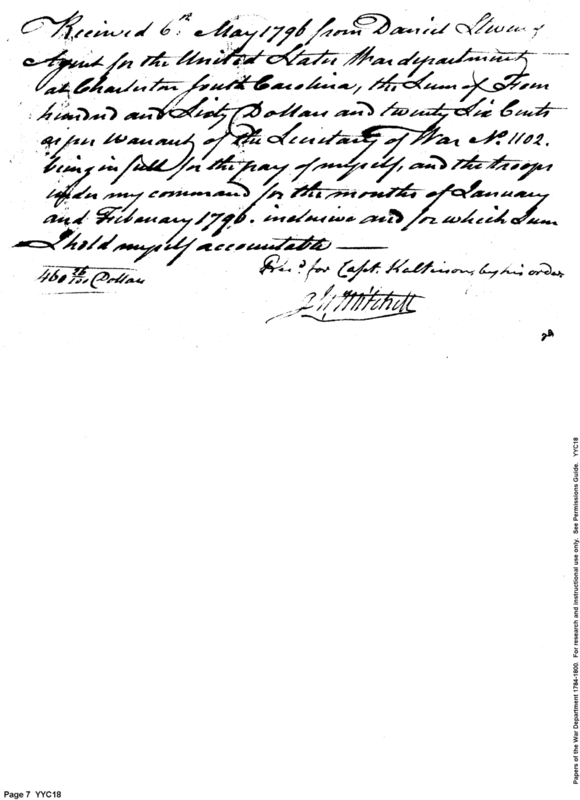 Received 6th May 1796 from Daniel Stevens
Agent for the United States War department
at Charleston South Carolina, the Sum of Four
hundred and Sixty Dollars and twenty Six Cents
as per Warrant of the Secretary of War No. 1102.
being in full for the pay of myself, and the troops
under my command for the months of January
and February 1796. inclusive and for which Sum
I hold myself accountable —
460 26/100 Dollars
for Capt. Kaltisons by his order
Mitchell
Page 7 YYC18
Papers of the War Department 1784-1800. For research and instructional use only. See Permissions Guide. YYC18